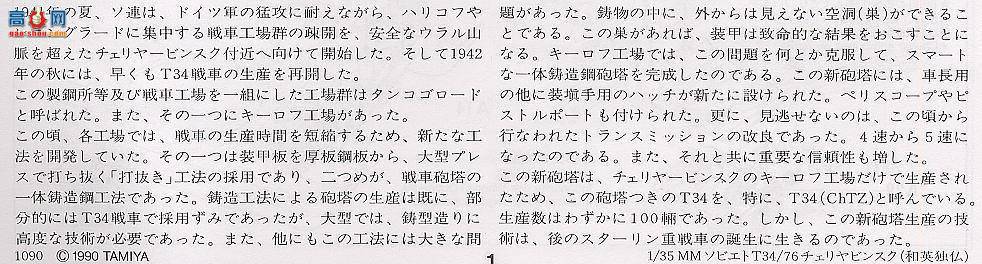 1941年の夏、ソ連は、ドイツ軍の猛攻に耐えながら、ハリコフや
グラードに集中する戦車工場群の疎開を、安全なウラル山
脈を超えたチェリヤービンスク付近へ向けて開始した。そして1942
年の秋には、早くもT34戦車の生産を再開した。
この製鋼所等及び戦車工場を一組にした工場群はタンコゴロード
と呼ばれた。また、その一つにキーロフ工場があった。
この頃、各工場では、戦車の生産時間を短縮するため、新たな工
法を開発していた。その一つは装甲板を厚板鋼板から、大型プレ
スで打ち抜く「打抜き」工法の採用であり、二つめが、戦車砲塔の
一体鋳造鋼工法であった。鋳造工法による砲塔の生産は既に、部
分的にはT34戦車で採用ずみであったが、大型では、鋳型造りに
高度な技術が必要であった。また、他にもこの工法には大きな問
題があった。鋳物の中に、外からは見えない空洞(巣)ができるこ
とである。この巣があれば、装甲は致命的な結果をおこすことに
なる。キーロフ工場では、この問題を何とか克服して、スマート
な一体鋳造鋼砲塔を完成したのである。この新砲塔には、車長用
の他に装塡手用のハッチが新たに設けられた。ペリスコープやピ
ストルポートも付けられた。更に、見逃せないのは、この頃から
行なわれたトランスミッションの改良であった。4速から5速に
なったのである。また、それと共に重要な信頼性も増した。
この新砲塔は、チェリヤービンスクのキーロフ工場だけで生産され
たため、この砲塔つきのT34を、特に、T34(ChTZ)と呼んでいる。
生産数はわずかに100輛であった。しかし、この新砲塔生産の技
術は、後のスターリン重戦車の誕生に生きるのであった。
1090 ©1990 TAMIYA
1
1/35 MM ソビエトT34/76チェリヤビンスク(和英独仏)